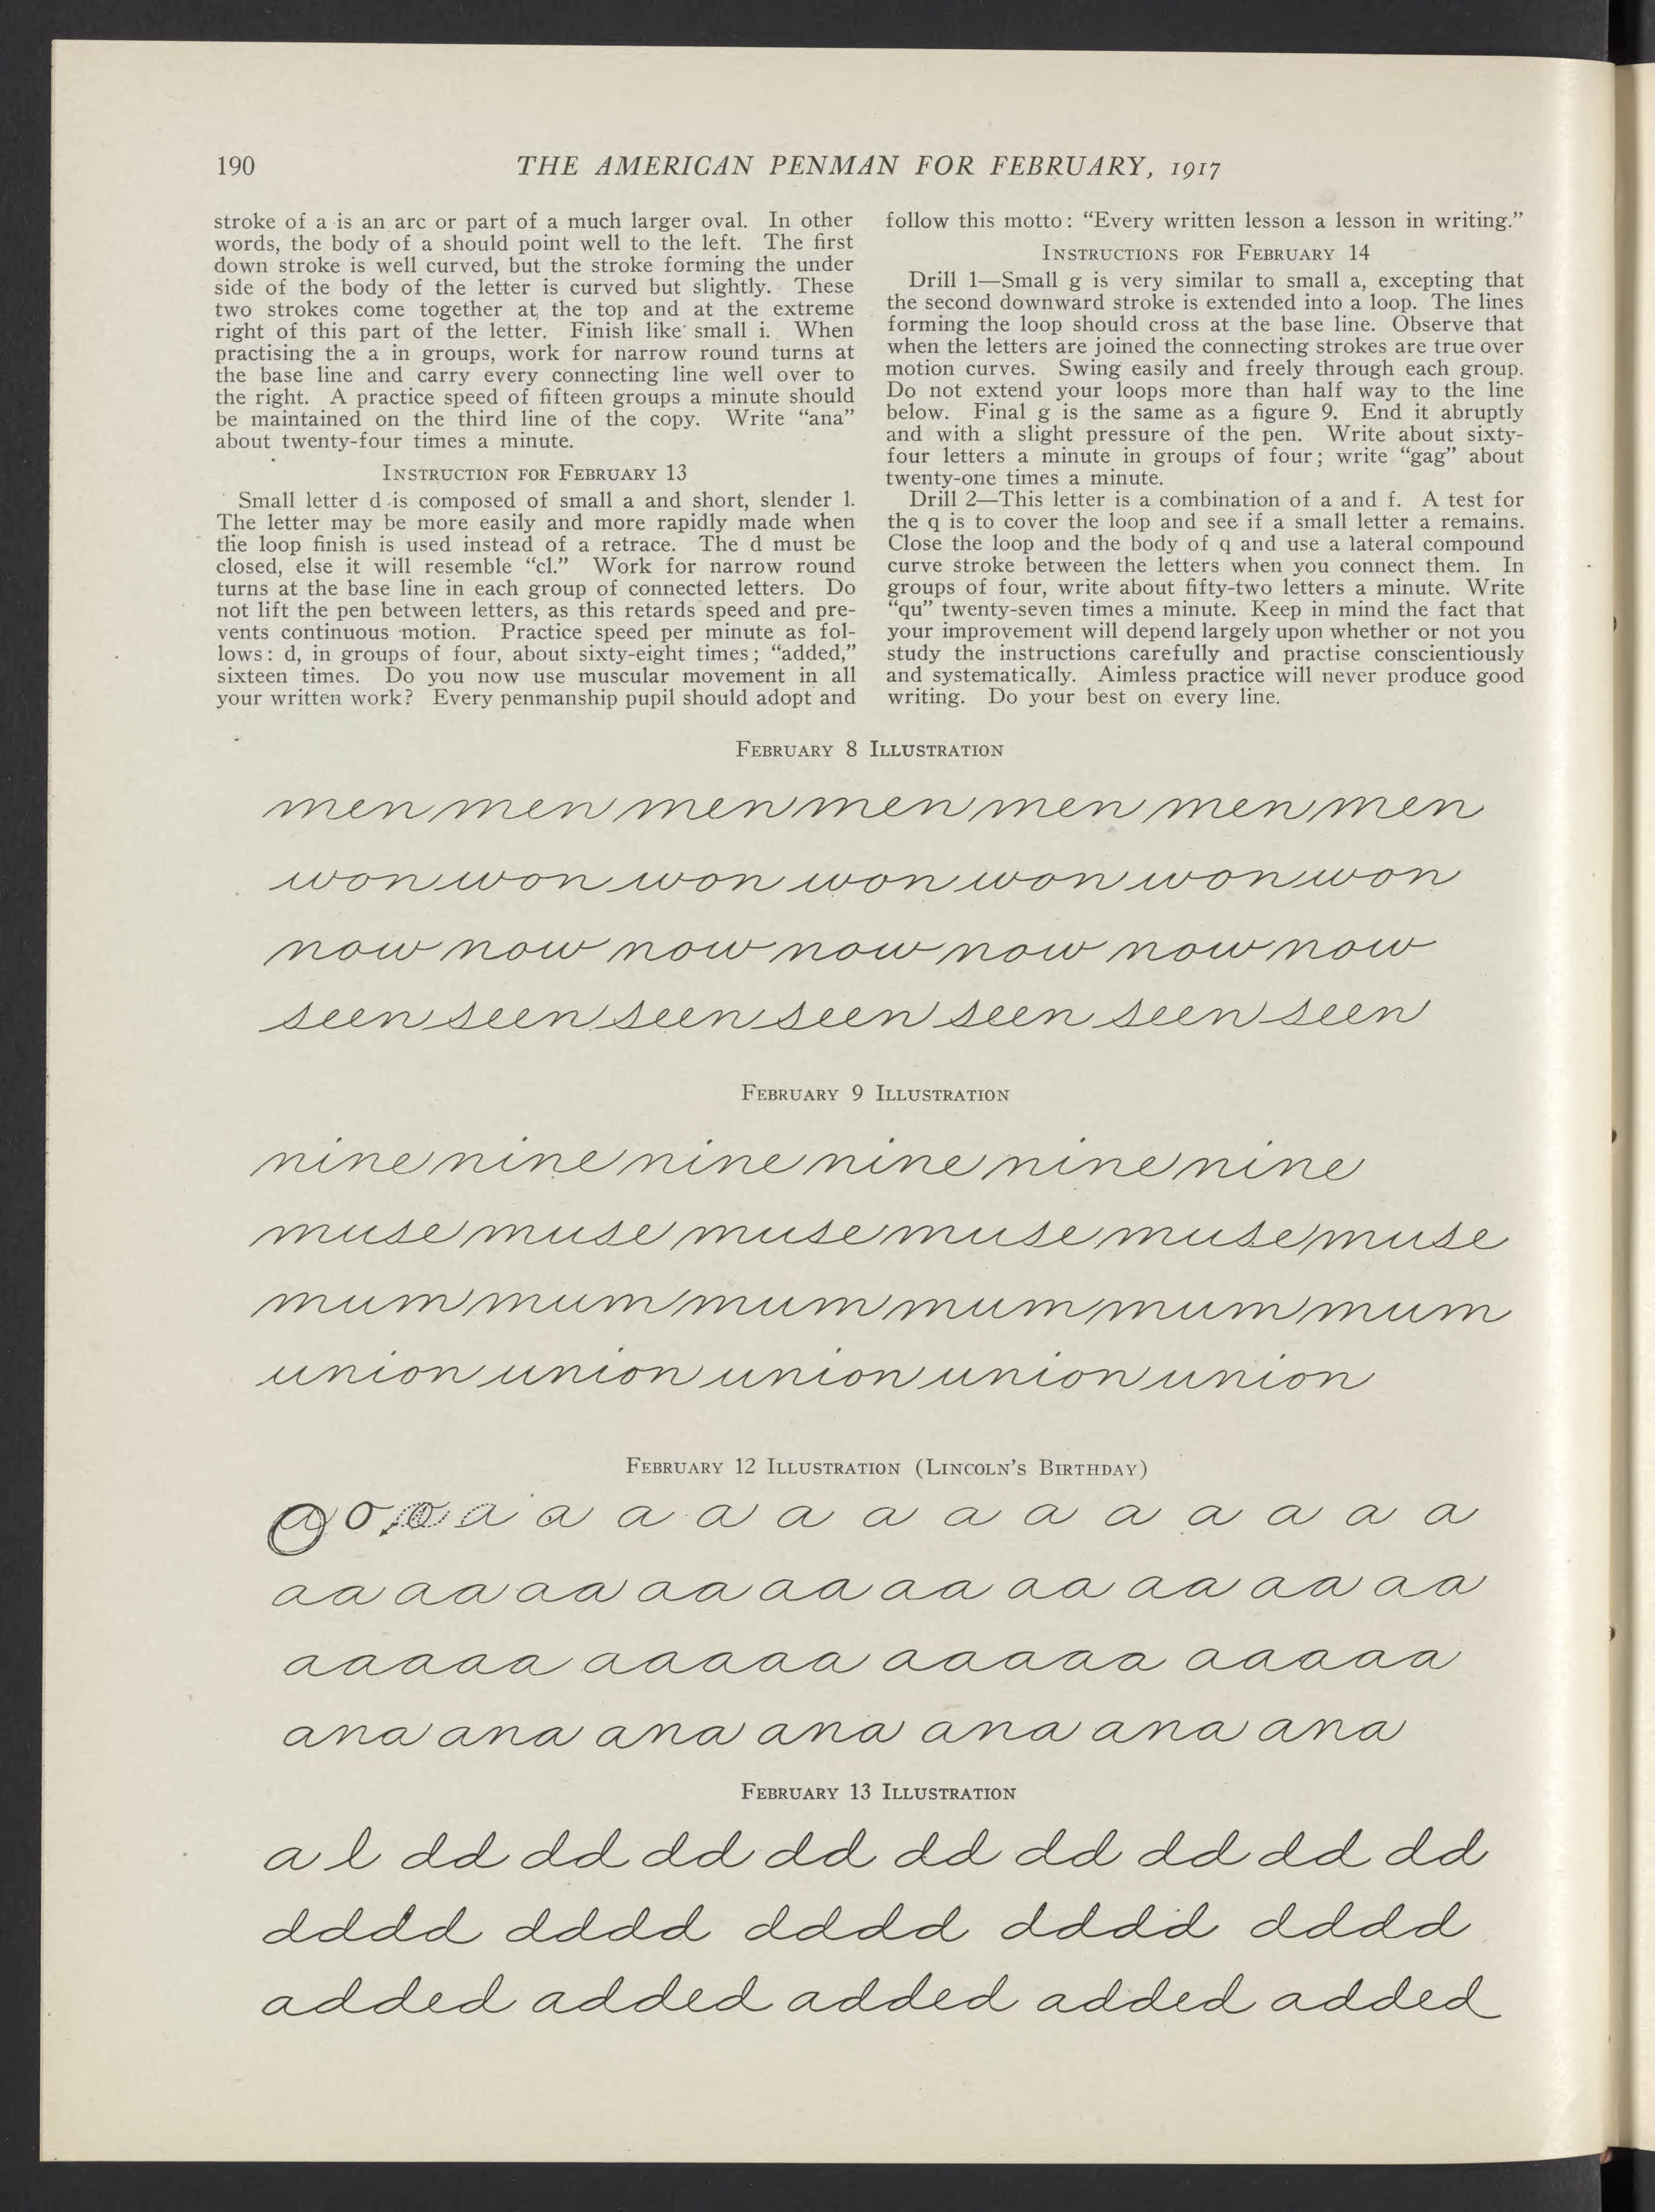 190
THE AMERICAN PENMAN FOR FEBRUARY, 1917
stroke of a is an arc or part of a much larger oval. In other
words, the body of a should point well to the left. The first
down stroke is well curved, but the stroke forming the under
side of the body of the letter is curved but slightly. These
two strokes come together at the top and at the extreme
right of this part of the letter. Finish like small i. When
practising the a in groups, work for narrow round turns at
the base line and carry every connecting line well over to
the right. A practice speed of fifteen groups a minute should
be maintained on the third line of the copy. Write “ana”
about twenty-four times a minute.
INSTRUCTION FOR FEBRUARY 13
Small letter d is composed of small a and short, slender l.
The letter may be more easily and more rapidly made when
the loop finish is used instead of a retrace. The d must be
closed, else it will resemble “cl.” Work for narrow round
turns at the base line in each group of connected letters. Do
not lift the pen between letters, as this retards speed and pre-
vents continuous motion. Practice speed per minute as fol-
lows: d, in groups of four, about sixty-eight times; “added,”
sixteen times. Do you now use muscular movement in all
your written work? Every penmanship pupil should adopt and
follow this motto: “Every written lesson a lesson in writing.”
INSTRUCTIONS FOR FEBRUARY 14
Drill 1—Small g is very similar to small a, excepting that
the second downward stroke is extended into a loop. The lines
forming the loop should cross at the base line. Observe that
when the letters are joined the connecting strokes are true over
motion curves. Swing easily and freely through each group.
Do not extend your loops more than half way to the line
below. Final g is the same as a figure 9. End it abruptly
and with a slight pressure of the pen. Write about sixty-
four letters a minute in groups of four; write “gag” about
twenty-one times a minute.
Drill 2—This letter is a combination of a and f. A test for
the q is to cover the loop and see if a small letter a remains.
Close the loop and the body of q and use a lateral compound
curve stroke between the letters when you connect them. In
groups of four, write about fifty-two letters a minute. Write
“qu” twenty-seven times a minute. Keep in mind the fact that
your improvement will depend largely upon whether or not you
study the instructions carefully and practise conscientiously
and systematically. Aimless practice will never produce good
writing. Do your best on every line.
FEBRUARY 8 ILLUSTRATION
men men men men men men men
won won won won won won won
now now now now now now now
seen seen seen seen seen seen seen
FEBRUARY 9 ILLUSTRATION
nine nine nine nine nine nine
muse muse muse muse muse muse
mum mum mum mum mum mum
union union union union union
FEBRUARY 12 ILLUSTRATION (LINCOLN'S BIRTHDAY)
a o a a a a a a a a a a a a a a
aa aa aa aa aa aa aa aa aa aa
aaaaa aaaaa aaaaa aaaaa
ana ana ana ana ana ana ana
FEBRUARY 13 ILLUSTRATION
a l dd dd dd dd dd dd dd dd dd
dddd dddd dddd dddd dddd
added added added added added